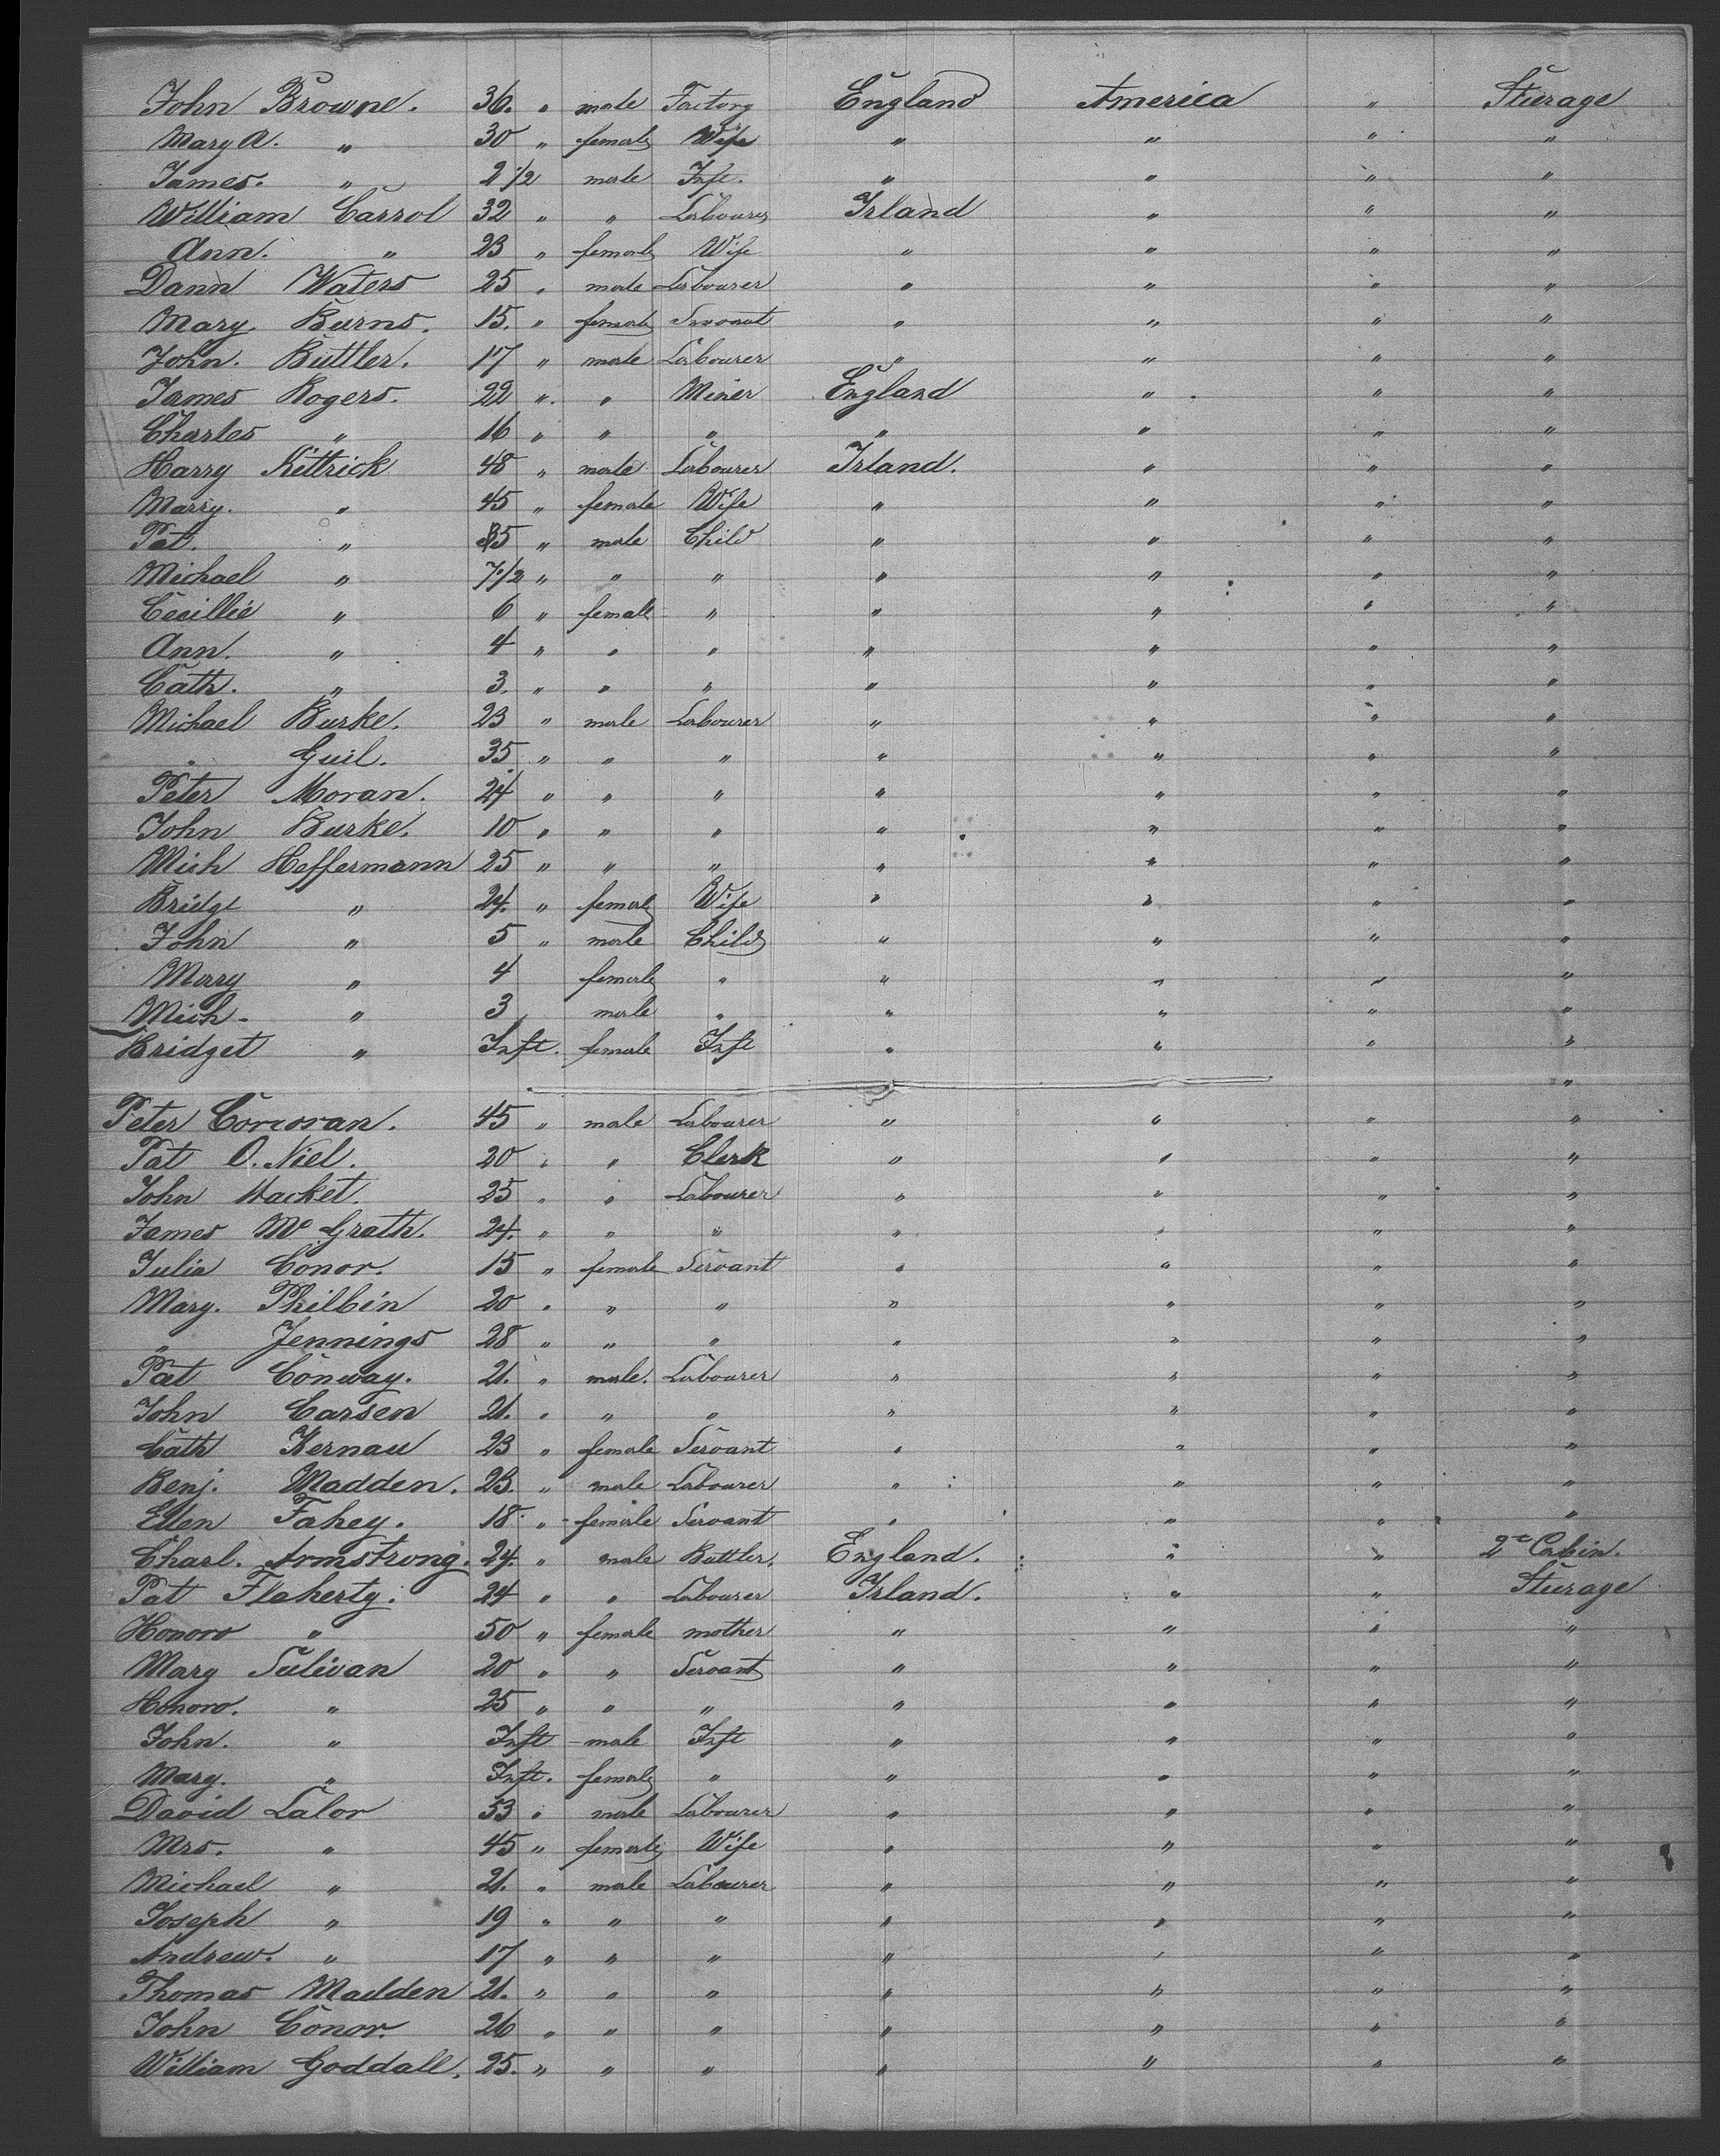 John Browne. 36. " male Factory England America " Sturage
Mary A. " 30 " female Wife " " " "
James. " 2 1/2 male Inft. " " " "
William Carrol 32 " " Labourer Irland " " "
Ann. " 23 " female Wife " " " "
Dann Waters 25 " male Labourer " " " "
Mary. Burns. 15. " female Servant " " " "
John. Buttler. 17 " male Labourer " " " "
James Rogers. 22 " " Miner England " " "
Charles " 16 " " " " " " "
Harry Kittrick 48 " male Labourer Irland. " " "
Marry. " 45 " female Wife " " " "
Pat. " 85 " male Child " " " "
Michael " 7 1/2 " " " " " " "
Cecillie " 6 " female " " " " "
Ann. " 4 " " " " " " "
Cath. " 3. " " " " " " "
Michael Burke. 23 " male Labourer " " " "
" Guil. 35. " " " " " " "
Peter Moran. 24 " " " " " " "
John Burke. 10 " " " " " " "
Mich Heffermann 25 " " " " " " "
Bridge " 24. " female Wife " " " "
John " 5 " male Child " " " "
Mary " 4 female " " " " "
Mich. " 3 male " " " " "
Bridget " Inft. female Inft " " " "
"
Peter Corcoran. 45 " male Labourer " " " "
Pat O. Niel. 20 " " Clerk " " " "
John Hacket. 25 " " Labourer " " " "
James Mc Grath. 24. " " " " " " "
Julia Conor. 15 " female Servant " " " "
Mary. Philbin 20 " " " " " " "
" Jennings 28 " " " " " " "
Pat Conway. 21. " male. Labourer " " " "
John Carsen 21. " " " " " " "
Cath Kernau 23 " female Servant " " " "
Benj. Madden. 23. " male Labourer " " " "
Ellen Fahey. 18 " female Servant " " " "
Charl. Armstrong. 24. " male Buttler. England. " " 2e Cabin.
Pat Flaherty. 24 " " Labourer Irland. " " Sturage
Honoro " 50 " female mother " " " "
Mary Sulivan 20 " " Servant " " " "
Honoro. " 25 " " " " " " "
John. " Inft male Inft " " " "
Mary. " Inft. female " " " " "
David Lalor 53 " male Labourer " " " "
Mrs. " 45 " female Wife " " " "
Michael " 21. " male Labourer " " " "
Joseph " 19 " " " " " " "
Andrew. " 17 " " " " " " "
Thomas Madden 21. " " " " " " "
John Conor. 26 " " " " " " "
William Goddall. 25. " " " " " " "